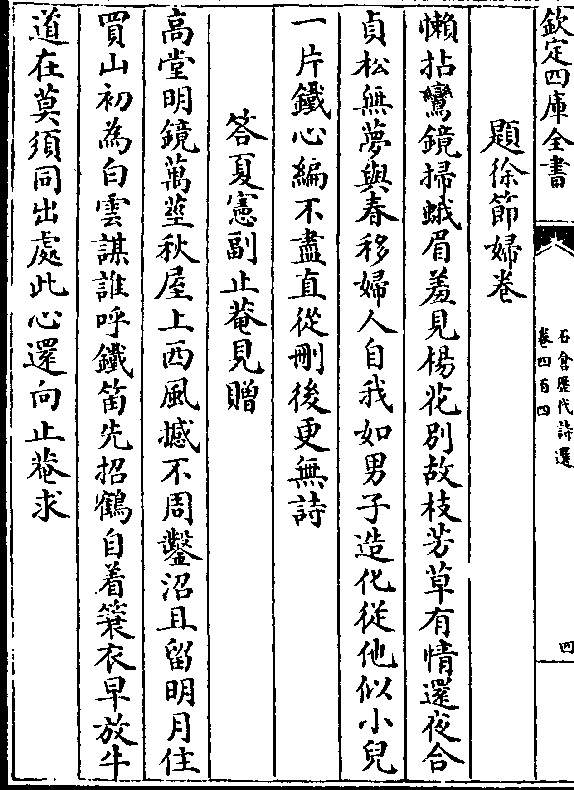 欽定四庫全書
石倉歷代詩選
卷四百四
四
題徐節婦卷
懶拈鸞鏡掃蛾眉羞見楊花别故枝芳草有情還夜合
貞松無夢與春移婦人自我如男子造化從他似小兒
一片鐵心編不盡直從刪後更無詩
答夏憲副止菴見贈
高堂明鏡萬莖秋屋上西風撼不周鑿沼且留明月住
買山初為白雲謀誰呼鐵笛先招鶴自着簑衣早放牛
道在莫須同出處此心還向止菴求